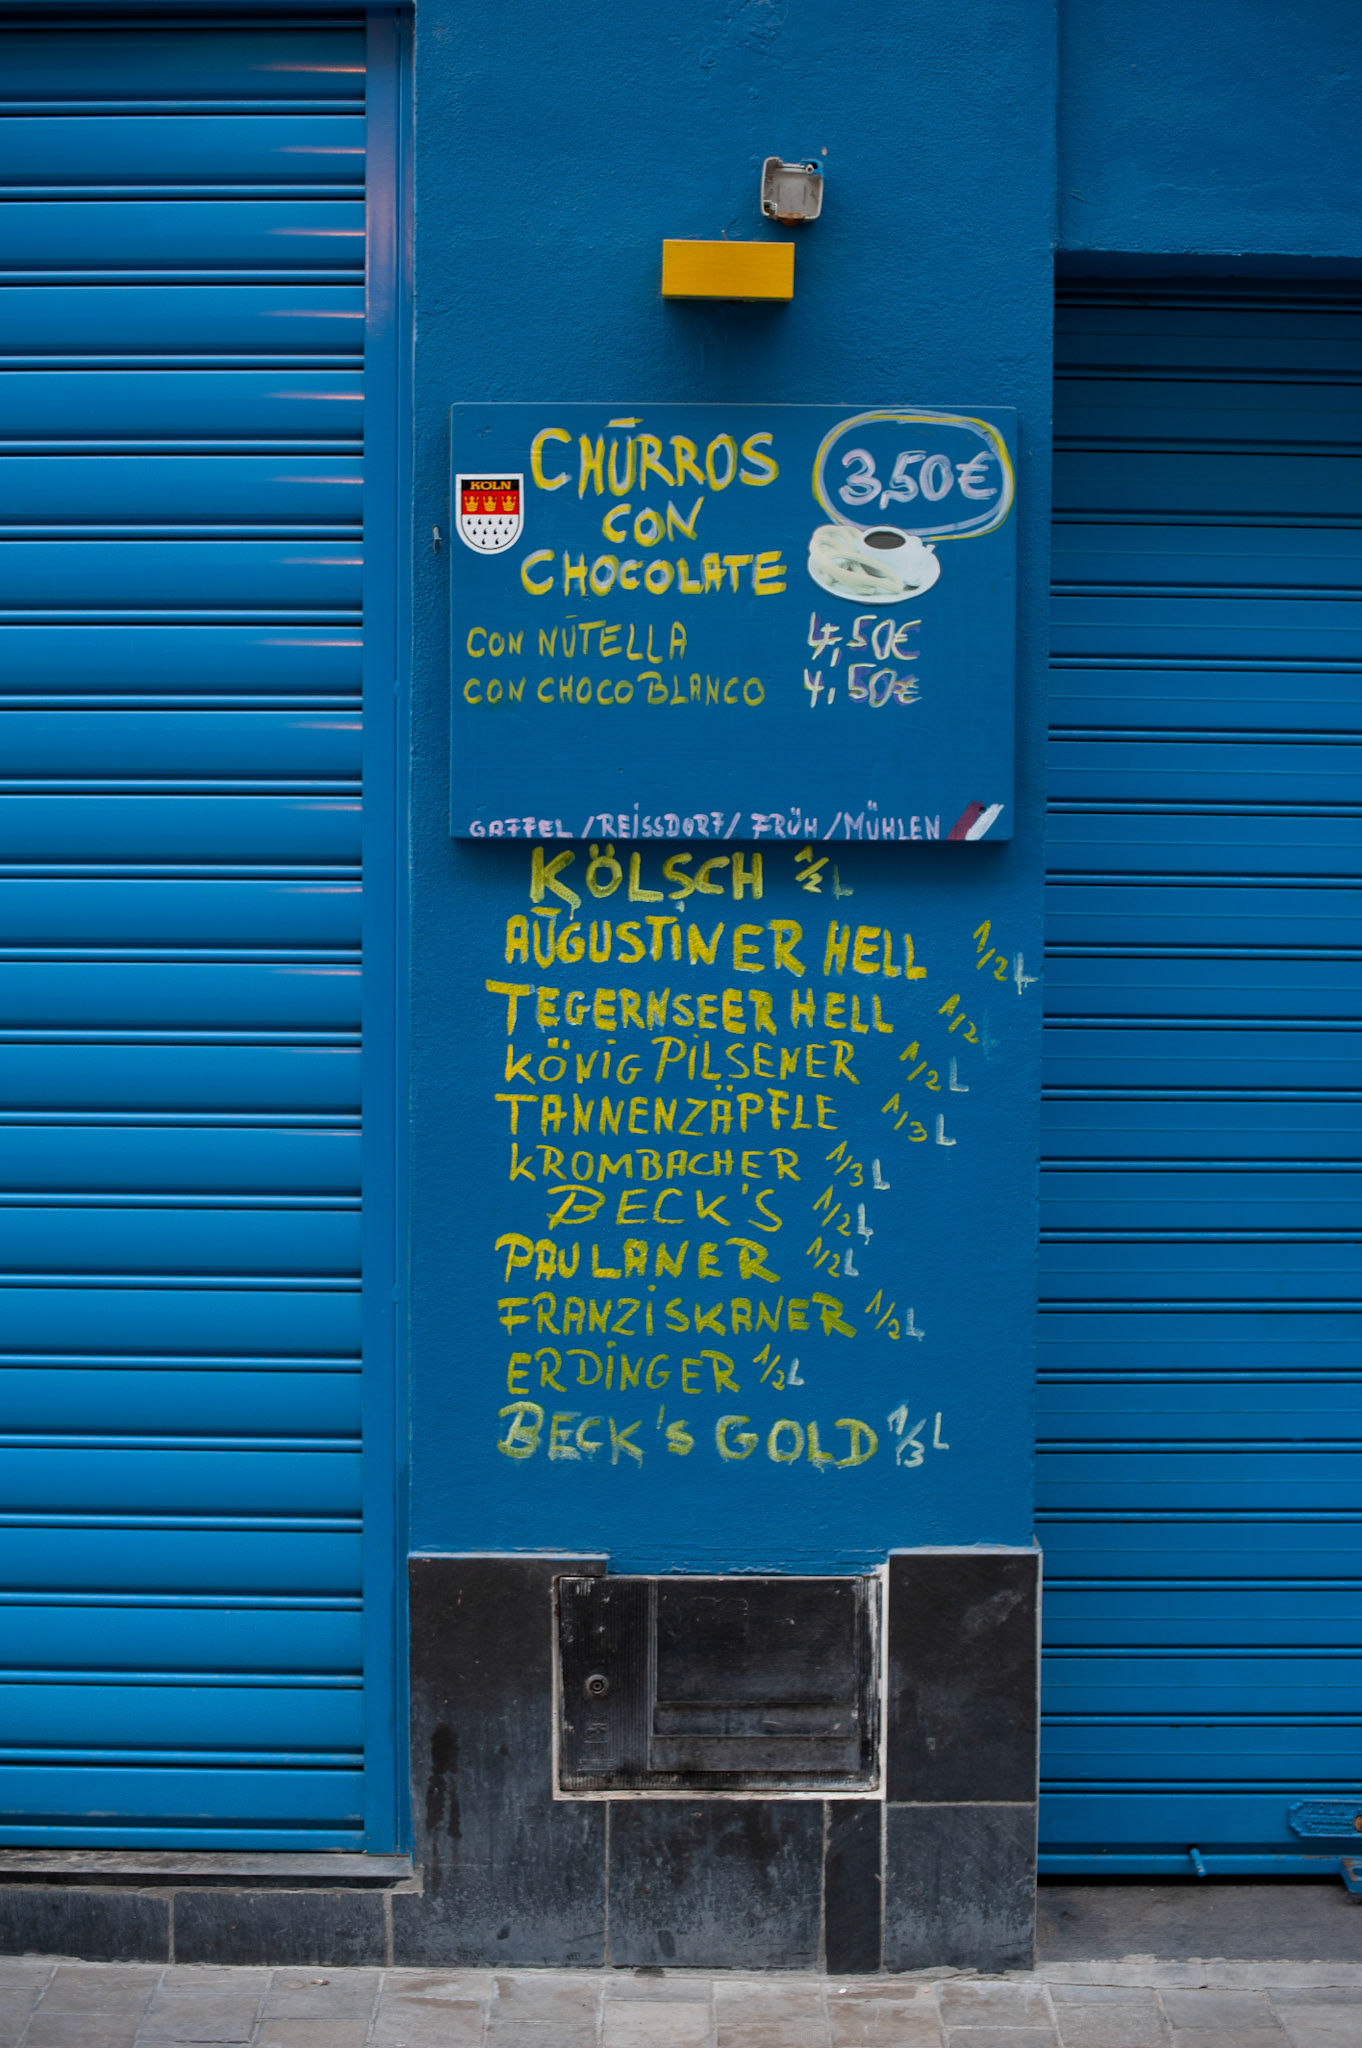 CHŪRROS 3,50€
KÖLN
CON
CHOCOLATE
CON NŪTELLA 4,50€
CON CHOCO BLANCO 4,50€
GAFFEL / REISSDORF / FRÜH / MÜHLEN
KÖLSCH 1/2 L
AŪGUSTINER HELL 1/2 L
TEGERNSEER HELL 1/2 L
KÖNIG PILSENER 1/2 L
TANNENZÄPFLE 1/3 L
KROMBACHER 1/3 L
BECK'S 1/2 L
PAULANER 1/2 L
FRANZISKANER 1/2 L
ERDINGER 1/2 L
BECK'S GOLD 1/3 L